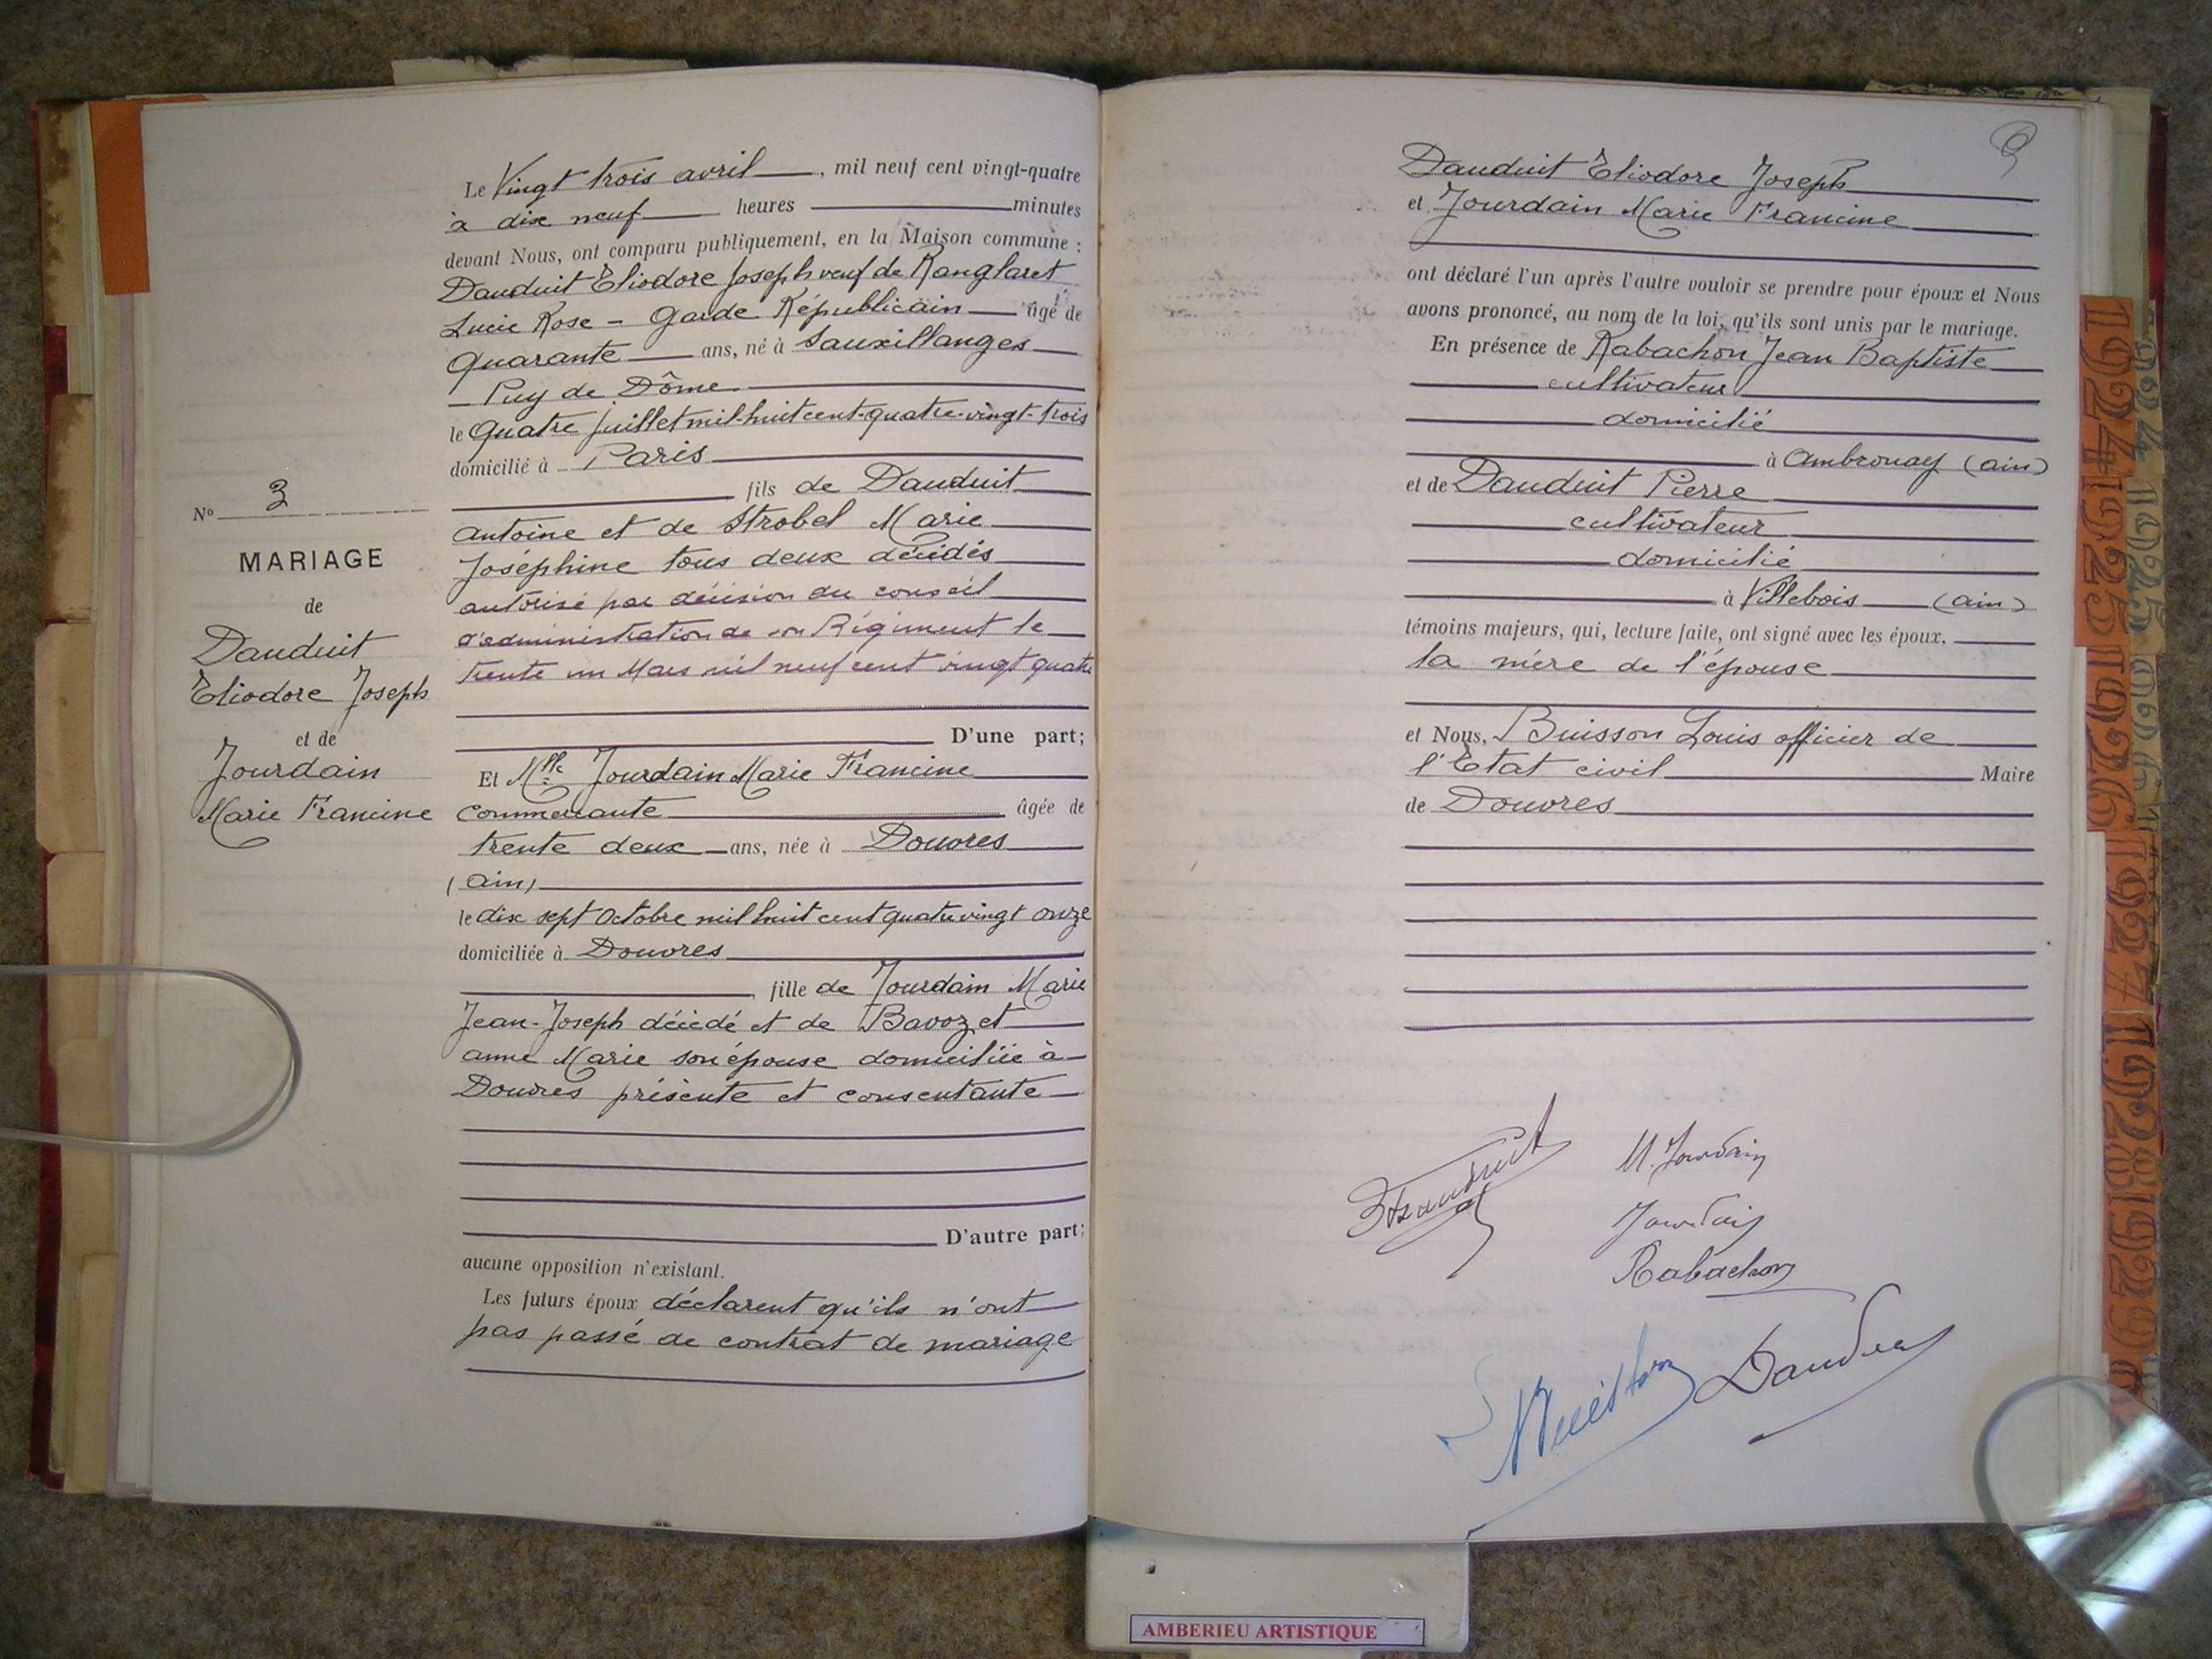 Le Vingt trois avril, mil neuf cent vingt-quatre
à dix neuf heures minutes
devant Nous, ont comparu publiquement, en la Maison commune :
Dauduit Eliodore Joseph veuf de Ranglaret
Lucie Rose - Garde Républicain âgé de
Quarante ans, né à Sauxillanges
Puy de Dôme
le Quatre juillet mil-huit cent-quatre-vingt-trois
domicilié à Paris
fils de Dauduit
Antoine et de Strobel Marie
Joséphine tous deux décédés
autorisé par décision du conseil
d'administration de son Régiment le
trente un Mars mil neuf cent vingt quatre
D'une part;
Et Mlle Jourdain Marie Francine
commerçante âgée de
trente deux ans, née à Douvres
(Ain)
le dix sept Octobre mil huit cent quatre vingt onze
domiciliée à Douvres
fille de Jourdain Marie
Jean-Joseph décédé et de Bavozet
Anne Marie son épouse domiciliée à
Douvres présente et consentante
D'autre part;
aucune opposition n'existant.
Les futurs époux déclarent qu'ils n'ont
pas passé de contrat de mariage
N° 3
MARIAGE
de
Dauduit
Eliodore Joseph
et de
Jourdain
Marie Francine
9
Dauduit Eliodore Joseph
et Jourdain Marie Francine
ont déclaré l'un après l'autre vouloir se prendre pour époux et Nous
avons prononcé, au nom de la loi, qu'ils sont unis par le mariage.
En présence de Rabachon Jean Baptiste
cultivateur
domicilié
à Ambronay (ain)
et de Dauduit Pierre
cultivateur
domicilié
à Villebois (ain)
témoins majeurs, qui, lecture faite, ont signé avec les époux.
la mère de l'épouse
et Nous, Buisson Louis officier de
l'Etat civil Maire
de Douvres
M. Jourdain
Jourdain
Rabachon
AMBERIEU ARTISTIQUE
1924
1925
1926
1927
1928
1929